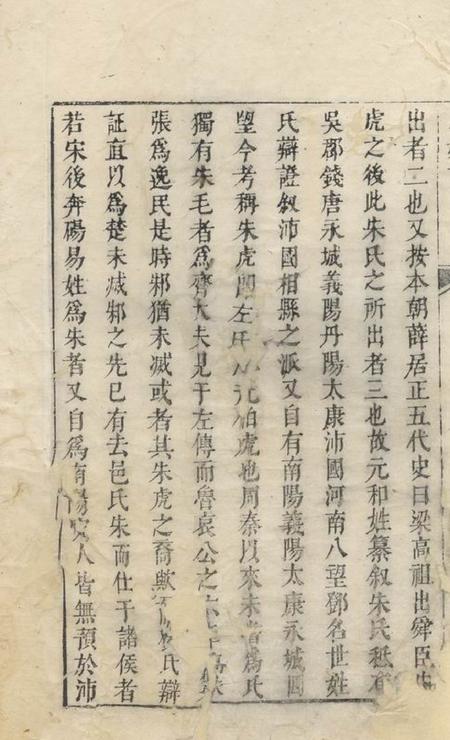 出者二也又按本朝薛居正五代史曰梁高祖出舜臣朱
虎之後此朱氏之所出者三也故元和姓纂叙朱氏秪有
吳郡錢唐永城義陽丹陽太康沛國河南八望鄧名世姓
氏辯證叙沛國相縣之派又自有南陽義陽太康永城四
望今考稱朱虎即左氏伯虎也周秦以來未者為氏
獨有朱毛者為齊大夫見于左傳而魯哀公之
張為逸民是時邾猶未滅或者其朱虎之裔歟氏辯
証直以為楚未滅邾之先已有去邑氏朱而仕于諸侯者
若宋後奔碭易姓為朱者又自為南陽人皆無預於沛